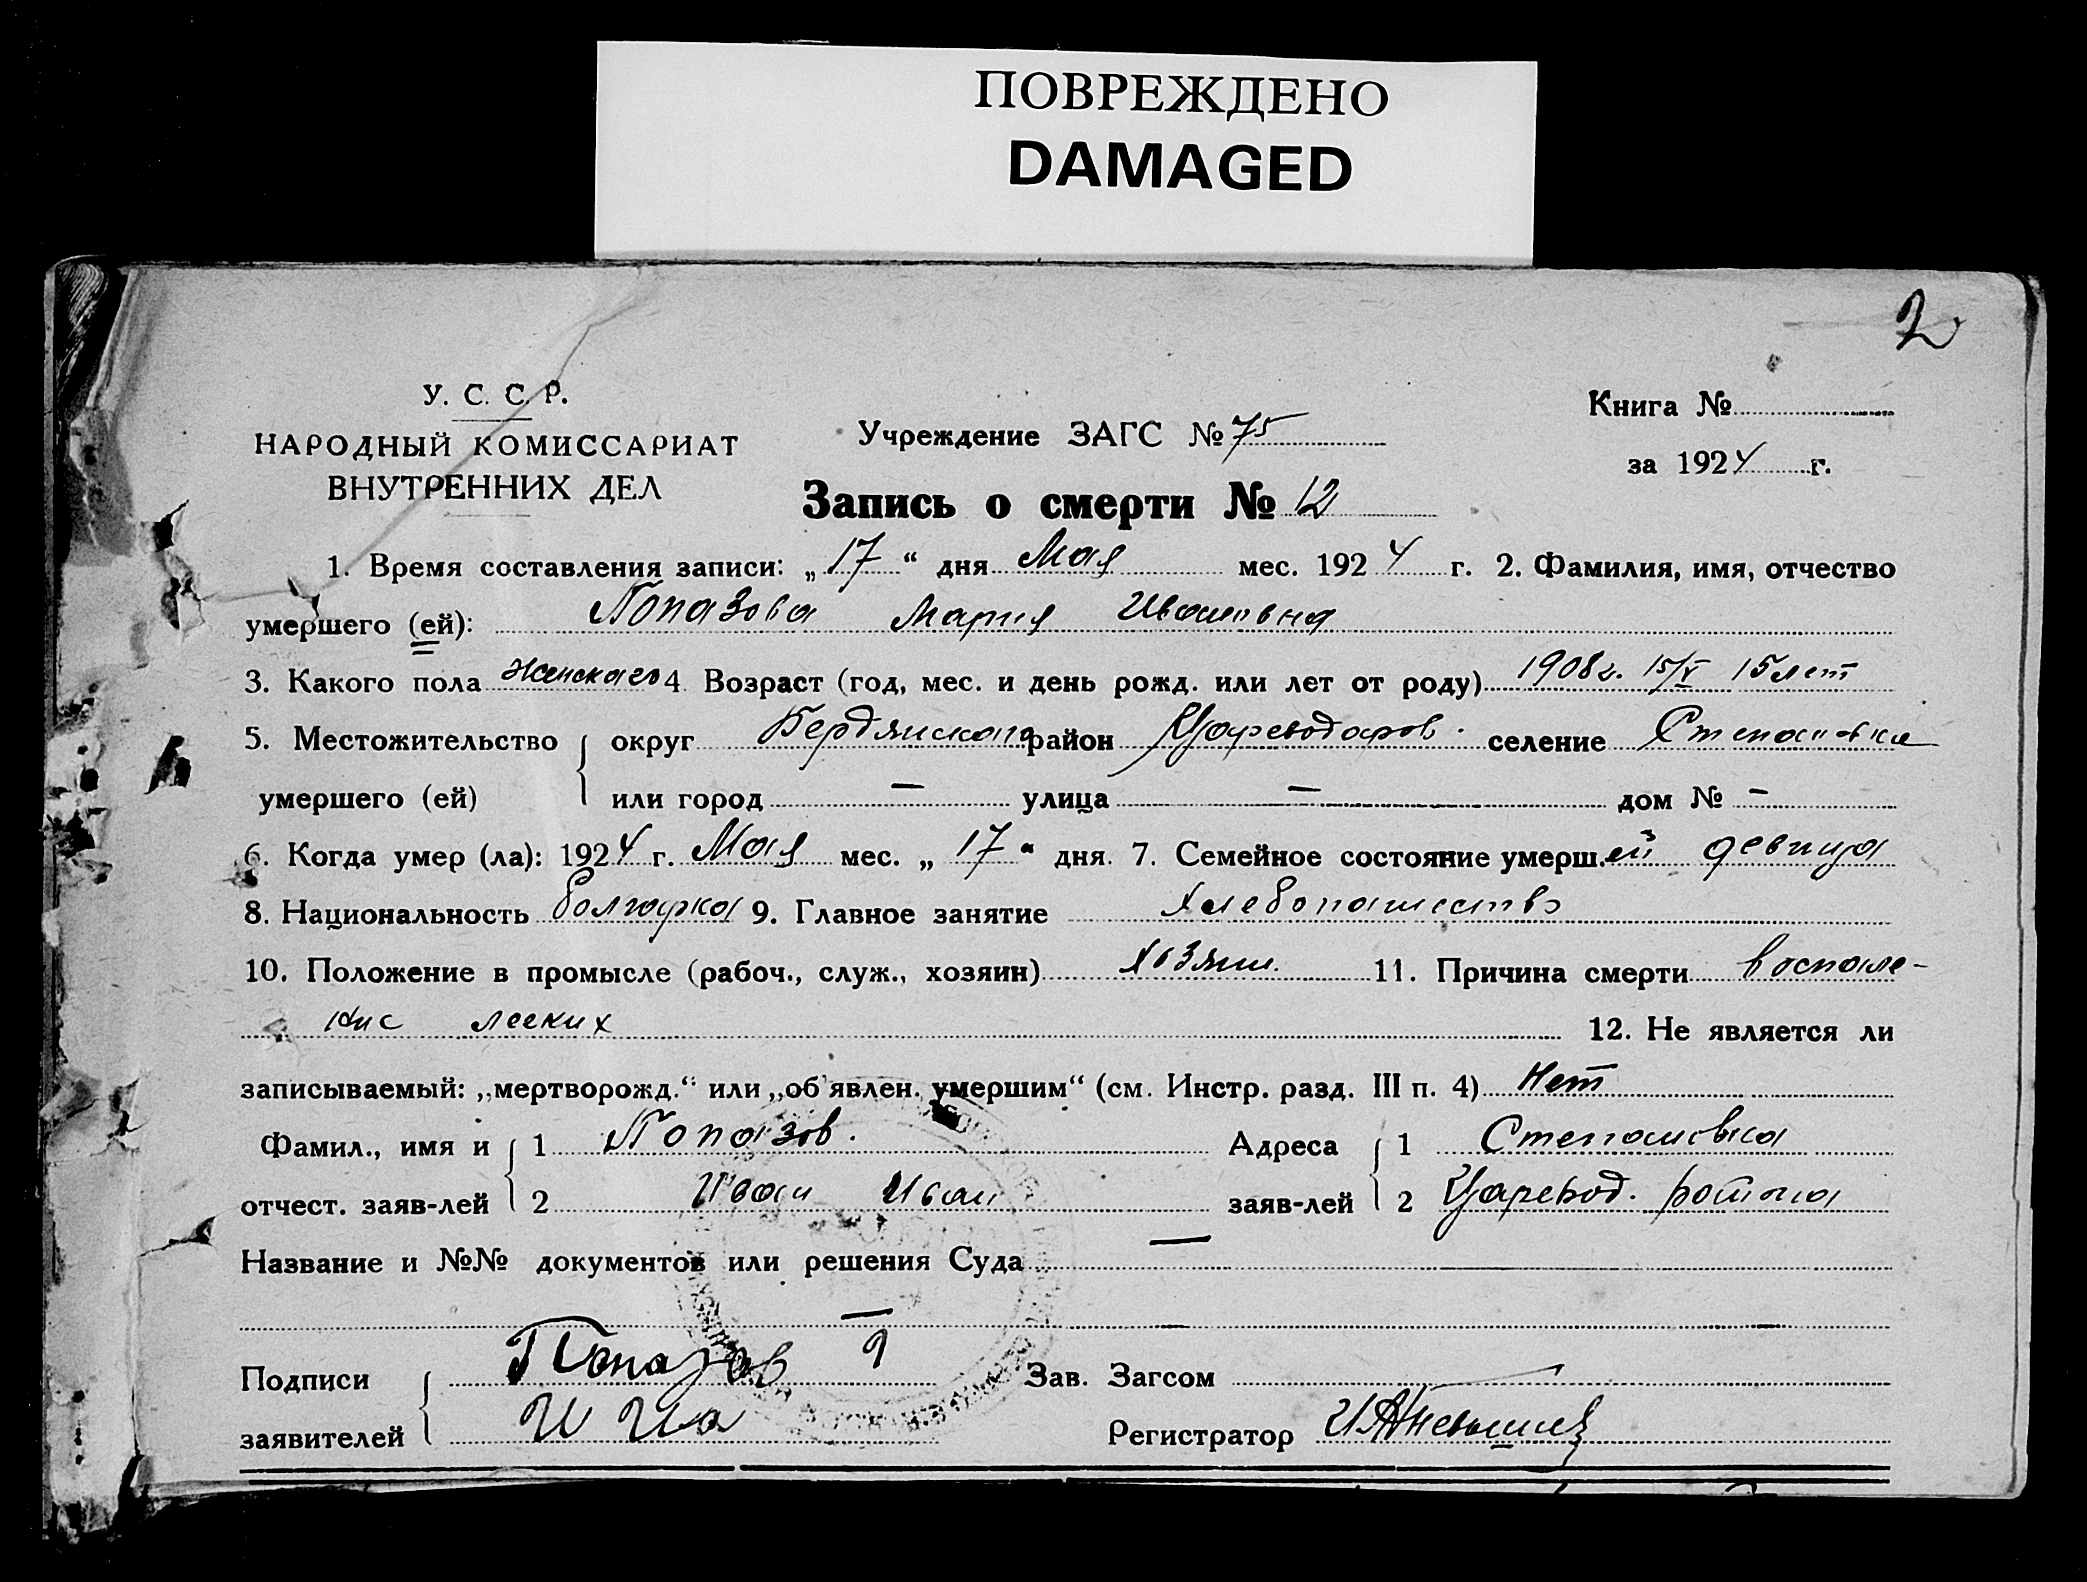 ПОВРЕЖДЕНО
DAMAGED
2
У. С. С. Р.
НАРОДНЫЙ КОМИССАРИАТ
ВНУТРЕННИХ ДЕЛ
Учреждение ЗАГС № 75
Книга №
за 1924 г.
Запись о смерти № 12
1. Время составления записи: „17“ дня Мая мес. 1924 г. 2. Фамилия, имя, отчество
умершего (ей): Попазова Мария Ивановна
3. Какого пола женскаго 4. Возраст (год, мес. и день рожд. или лет от роду) 1908 г. 15/V 15 лет
5. Местожительство округ Бердянскаго район Цареводаров. селение Степановка
умершего (ей) или город — улица — дом № —
6. Когда умер (ла): 1924 г. Мая мес. „17“ дня. 7. Семейное состояние умерш.ей девица
8. Национальность болгарка 9. Главное занятие хлебопашество
10. Положение в промысле (рабоч., служ., хозяин) хозяин. 11. Причина смерти воспале-
ние легких 12. Не является ли
записываемый: „мертворожд.“ или „об'явлен. умершим“ (см. Инстр. разд. III п. 4) Нет
Фамил., имя и 1 Попазов. Адреса 1 Степановка
отчест. заяв-лей 2 Иван Иван заяв-лей 2 Царевод. района
Название и №№ документов или решения Суда —
—
Подписи Попазов Зав. Загсом
заявителей И Ива Регистратор